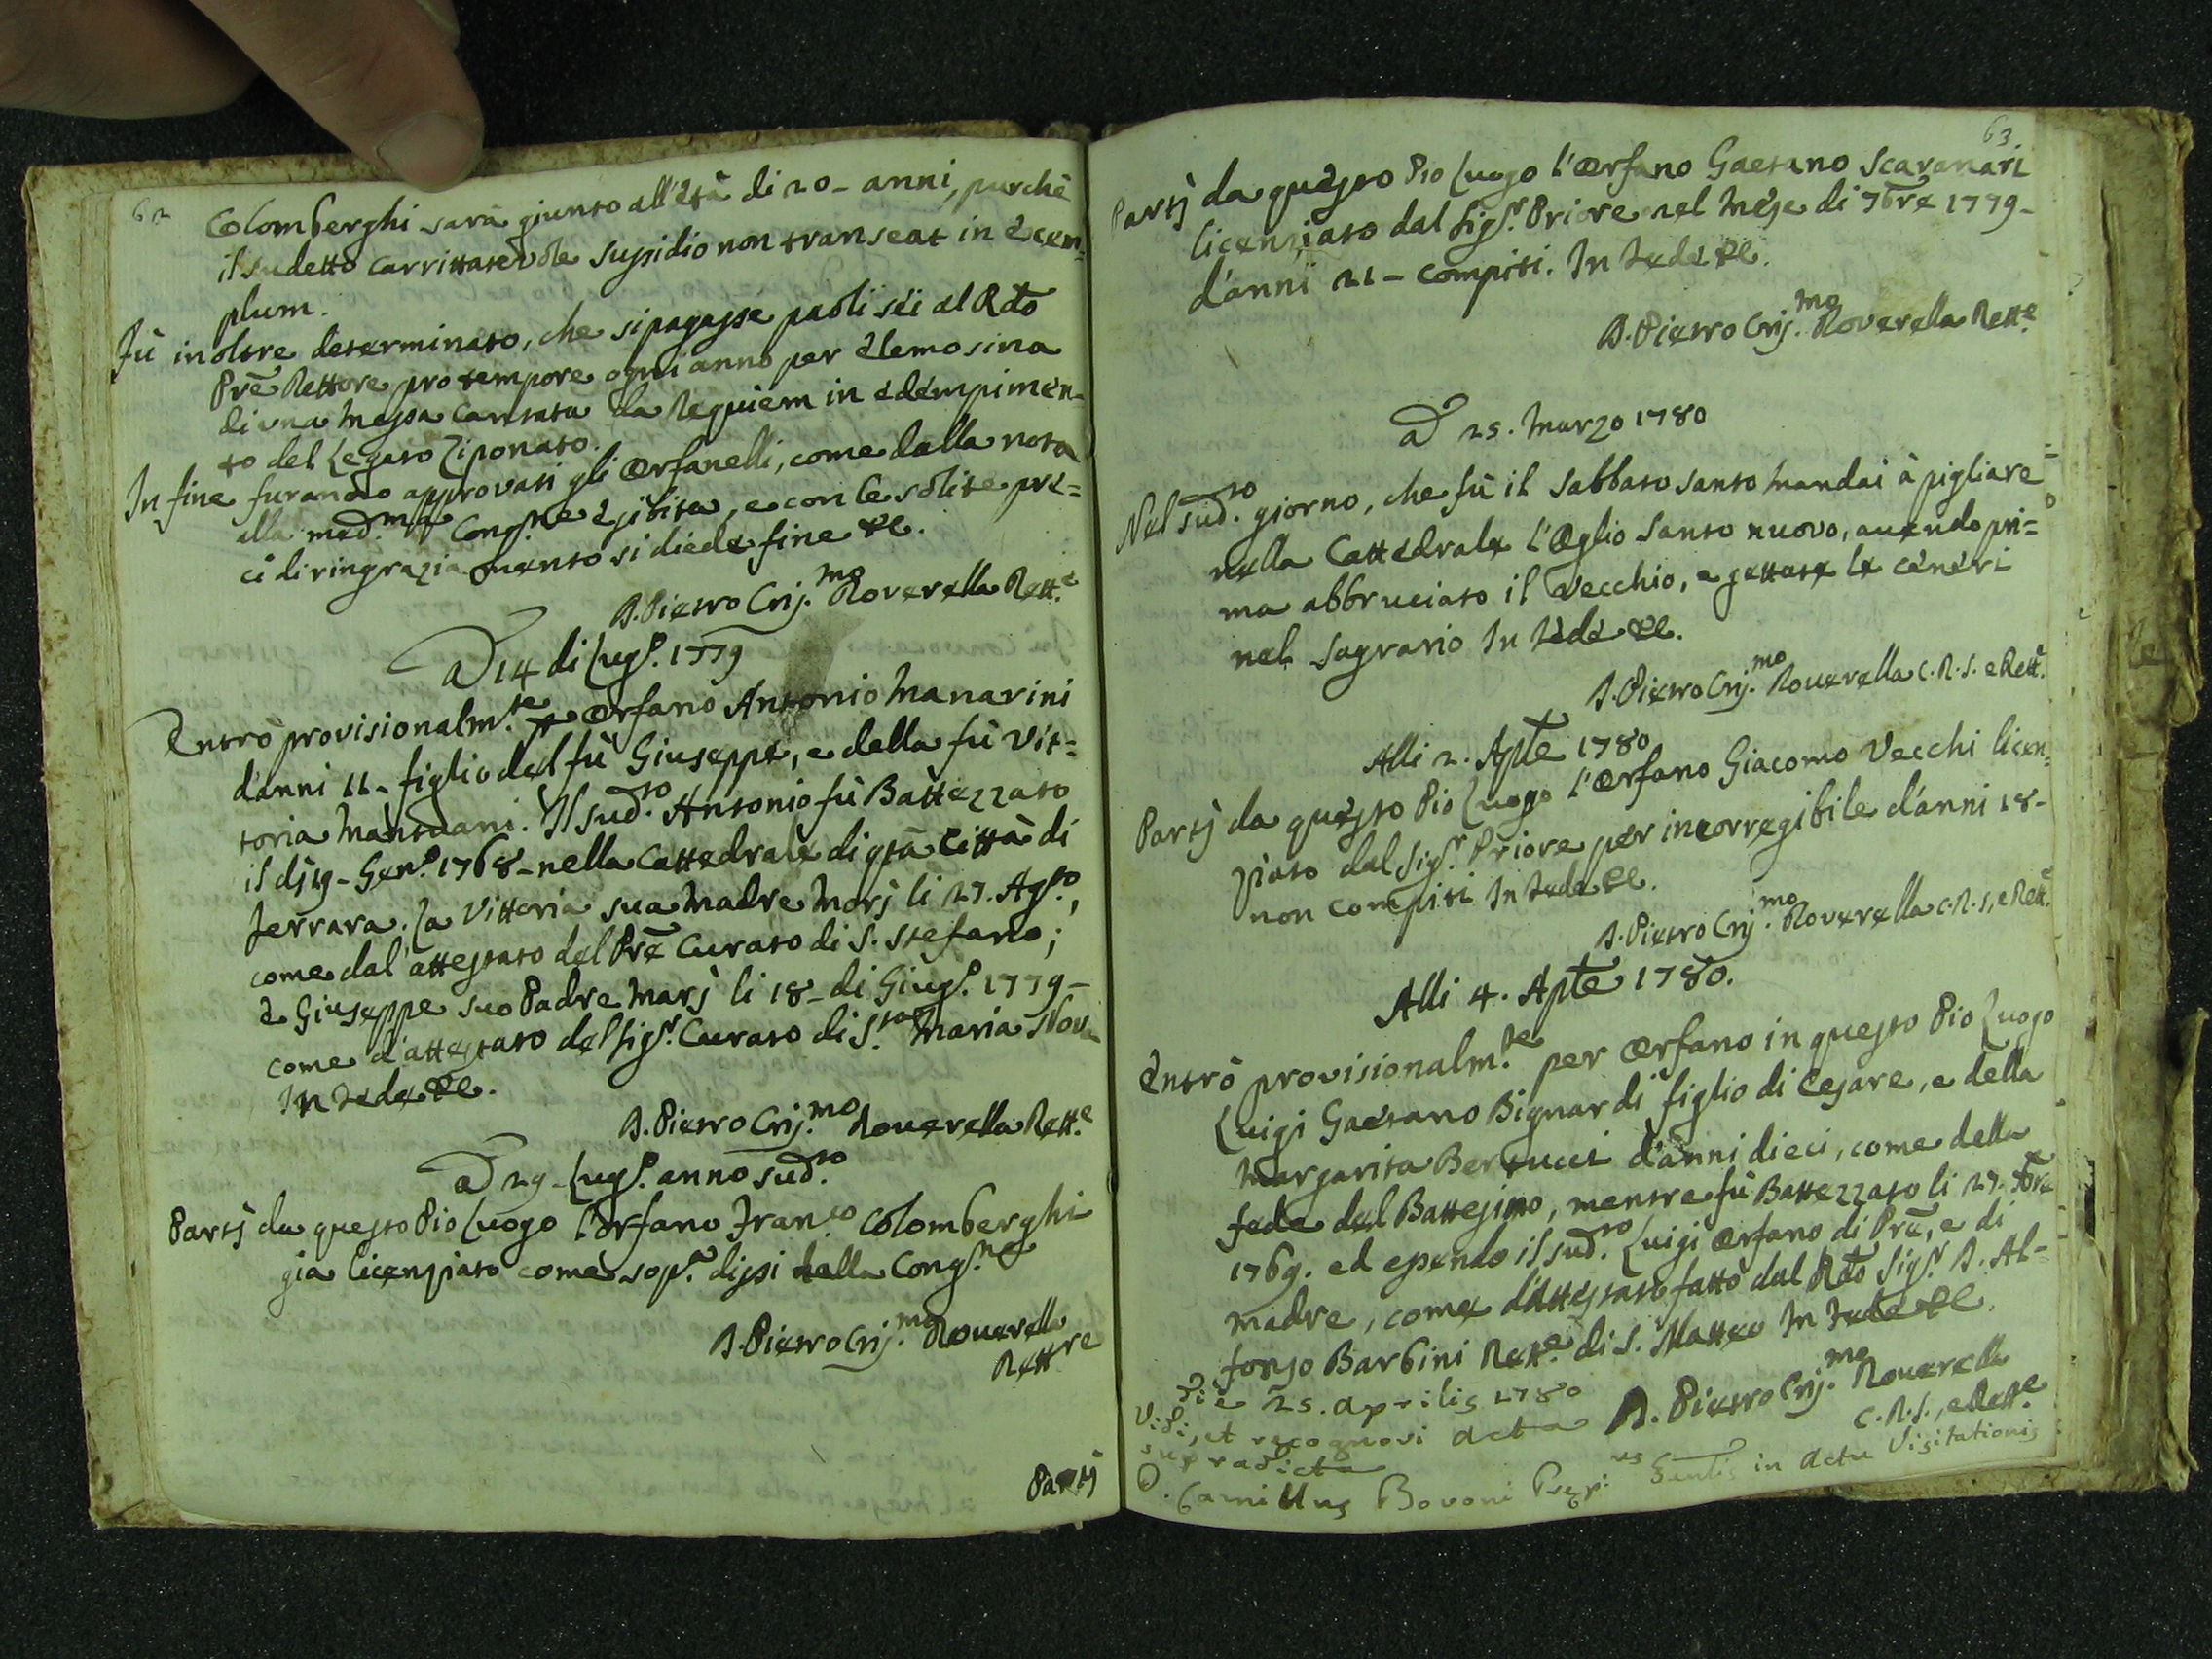 62
Colomberghi sarà giunto all'età di 20 - anni, purchè
il sudetto carrittatevole sussidio non transeat in exem=
plum.
Fù inoltre determinato, che si pagasse paoli sèi al Rdo
Prẽ Rettore pro tempore ogni anno per elemosina
di una Messa cantata da Requiem in adempimen-
to del Legato Ziponato.
In fine furando approvati gli Orfanelli, come dalla nota
alla med.ma Cong.ne esibita, e con le solite pre=
ci di ringraziamento si diede fine &c.
D. Pietro Crij.mo Roverella Rett.e
A 14 di Lug.o 1779
Entrò provisionalm.te p orfano Antonio Manarini
d'anni 11 - figlio del fù Giuseppe, e della fù Vit=
toria Mantoani. Il sud.to Antonio fù Battezzato
il dì 19 - Gen.o 1768 - nella Cattedrale di qtà Città di
Ferrara. La Vittoria sua Madre Morì li 27. Ag.to,
come dal' attestato del Prẽ Curato di S. Stefano;
e Giuseppe suo Padre Marì li 18 - di Giug.o 1779 -
come d'attestato del Sig.r Curato di S.ta Maria Nov
In Fede &c.
D. Pietro Crij.mo Rouerella Rett.e
A 29 - Lug.o anno sud.to
Partì da questo Pio Luogo l'orfano Fran.co Colomberghi
già licenziato come sop.a dissi dalla Cong.ne
D. Pietro Crij.mo Rouerella
Rettre
Partì
63
Partì da questo Pio Luogo l'Orfano Gaetano Scavanari
licenziato dal Sig.r Priore nel Mese di 7bre 1779 -
d'anni 21 - compiti. In Fede &c.
D. Pietro Crij.mo Roverella Rett.e
A 25. Marzo 1780
Nel sud.to giorno, che fù il Sabbato Santo Mandai à pigliare
nella Cattedrale l'Oglio Santo nuovo, auendo pri=
ma abbruciato il Vecchio, e gettate le cèneri
nel Sagrario In Fede &c.
D. Pietro Crij.mo Rouerella C. R. S. e Rett.e
Alli 2. Aple 1780
Partì da questo Pio Luogo l'Orfano Giacomo Vecchi licen=
ziato dal Sig.r Priore per incorregibile d'anni 18 -
non compiti In Fede &c.
D. Pietro Crij.mo Roverella C. R. S., e Rett.e
Alli 4. Aple 1780.
Entrò provisionalm.te per Orfano in questo Pio Luogo
Luigi Gaetano Bignardi figlio di Cesare, e della
Margarita Bertucci d'anni dieci, come della
fede del Battesimo, mentre fù Battezzato li 27.
1769. ed essendo il sud.to Luigi Orfano di Prẽ, e di
madre, come d'Attestato fatto dal Rdo Sig.r D. Al=
fonso Barbini Rett.e di S. Matteo In Fede &c.
D. Pietro Crij.mo Rouerella
C. R. S., e Rett.e
Die 25. Aprilis 1780
Vidi, et recognovi acta
supradicta
D. Camillus Bovoni Prep.us Gentis in actu Visitationis